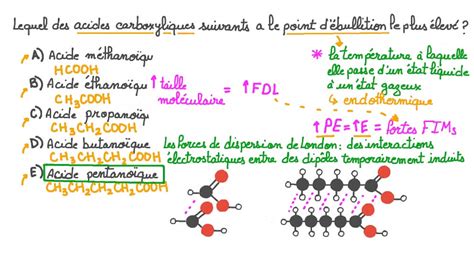 Lequel des acides carboxyliques suivants a le point d'ébullition le plus élevé ?
A) Acide méthanoïqu
HCOOH
B) Acide éthanoïqu
CH₃COOH
C) Acide propanoïq
CH₃CH₂COOH
D) Acide butanoïque
CH₃CH₂CH₂COOH
E) Acide pentanoïque
CH₃CH₂CH₂CH₂COOH
↑ taille
moléculaire = ↑ FDL
* la température à laquelle
elle passe d'un état liquide
à un état gazeux
↳ endothermique
↑ PE = ↑ E = fortes FIMs
Les forces de dispersion de London : des interactions
électrostatiques entre des dipôles temporairement induits
C H O